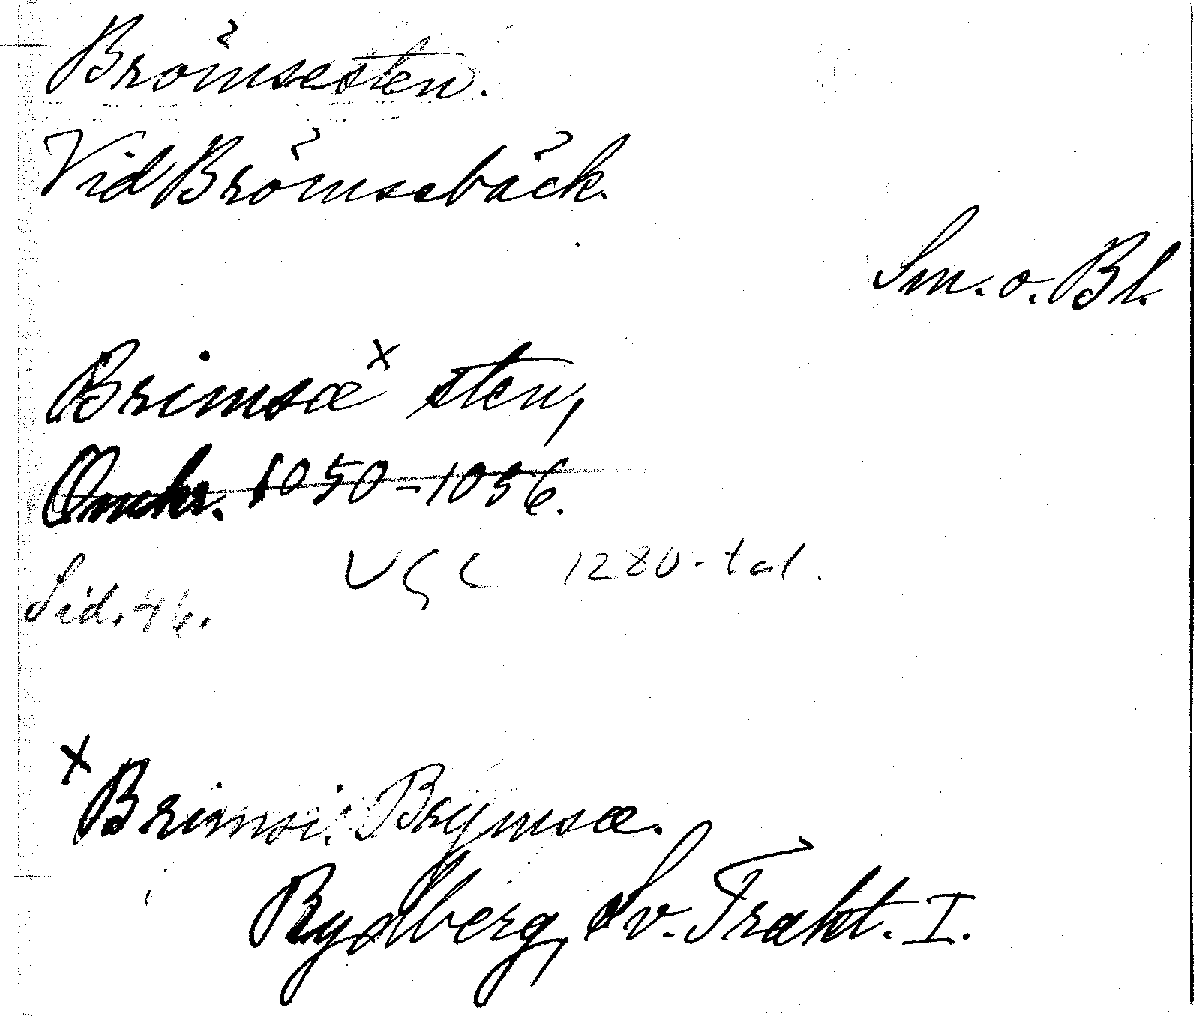 Brömsesten.
Vid Brömsebäck.
Sm. o. Bl.
Brimsæ x sten,
Omkr. 1050-1056.
VGL 1280-tal.
Sid. 46.
x Brimsi. Brymsæ.
Rydberg, Sv. Trakt. I.